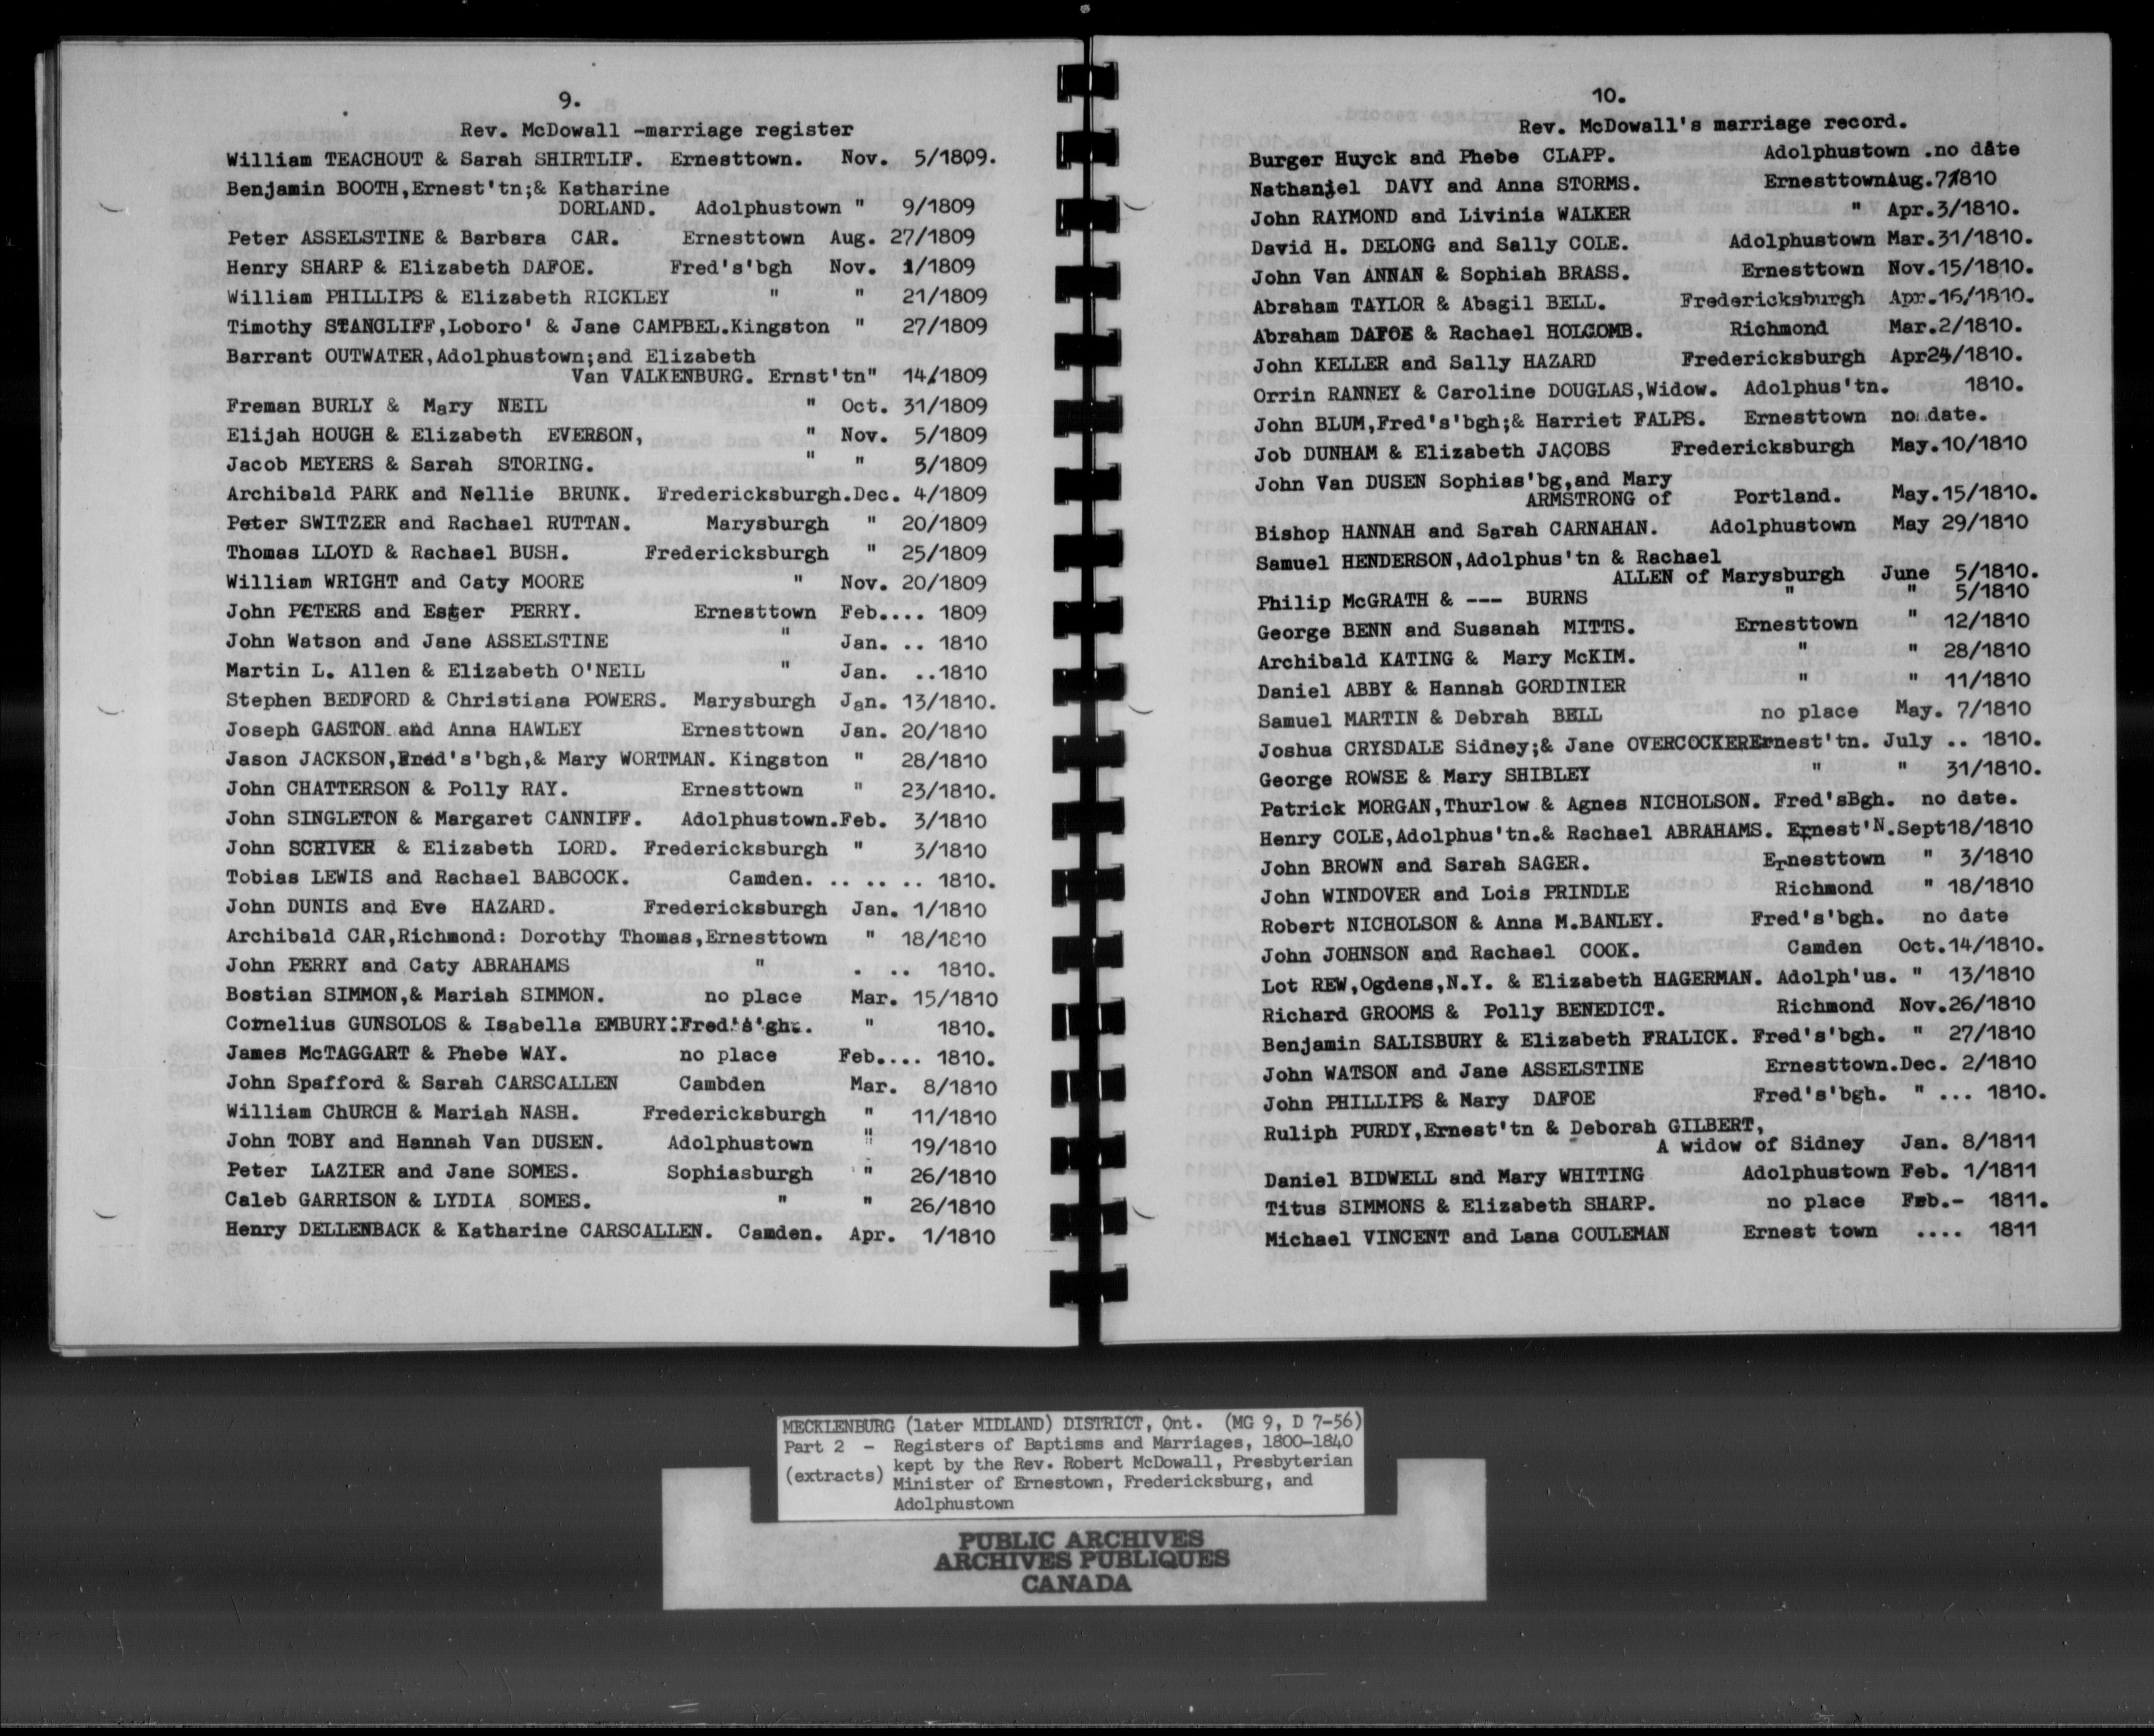 9.
Rev. McDowall -marriage register
William TEACHOUT & Sarah SHIRTLIF. Ernesttown. Nov. 5/1809.
Benjamin BOOTH,Ernest'tn;& Katharine
DORLAND. Adolphustown " 9/1809
Peter ASSELSTINE & Barbara CAR. Ernesttown Aug. 27/1809
Henry SHARP & Elizabeth DAFOE. Fred's'bgh Nov. 1/1809
William PHILLIPS & Elizabeth RICKLEY " " 21/1809
Timothy STANCLIFF,Loboro' & Jane CAMPBEL.Kingston " 27/1809
Barrant OUTWATER,Adolphustown;and Elizabeth
Van VALKENBURG. Ernst'tn" 14/1809
Freman BURLY & Mary NEIL " Oct. 31/1809
Elijah HOUGH & Elizabeth EVERSON, " Nov. 5/1809
Jacob MEYERS & Sarah STORING. " " 5/1809
Archibald PARK and Nellie BRUNK. Fredericksburgh.Dec. 4/1809
Peter SWITZER and Rachael RUTTAN. Marysburgh " 20/1809
Thomas LLOYD & Rachael BUSH. Fredericksburgh " 25/1809
William WRIGHT and Caty MOORE " Nov. 20/1809
John PETERS and Ester PERRY. Ernesttown Feb.... 1809
John Watson and Jane ASSELSTINE " Jan. .. 1810
Martin L. Allen & Elizabeth O'NEIL " Jan. ..1810
Stephen BEDFORD & Christiana POWERS. Marysburgh Jan. 13/1810.
Joseph GASTON and Anna HAWLEY Ernesttown Jan. 20/1810
Jason JACKSON,Fred's'bgh,& Mary WORTMAN. Kingston " 28/1810
John CHATTERSON & Polly RAY. Ernesttown " 23/1810.
John SINGLETON & Margaret CANNIFF. Adolphustown.Feb. 3/1810
John SCRIVER & Elizabeth LORD. Fredericksburgh " 3/1810
Tobias LEWIS and Rachael BABCOCK. Camden. .. .. .. 1810.
John DUNIS and Eve HAZARD. Fredericksburgh Jan. 1/1810
Archibald CAR,Richmond: Dorothy Thomas,Ernesttown " 18/1810
John PERRY and Caty ABRAHAMS " . .. 1810.
Bostian SIMMON,& Mariah SIMMON. no place Mar. 15/1810
Cornelius GUNSOLOS & Isabella EMBURY:Fred's'gh.. " 1810.
James McTAGGART & Phebe WAY. no place Feb.... 1810.
John Spafford & Sarah CARSCALLEN Cambden Mar. 8/1810
William ChURCH & Mariah NASH. Fredericksburgh " 11/1810
John TOBY and Hannah Van DUSEN. Adolphustown " 19/1810
Peter LAZIER and Jane SOMES. Sophiasburgh " 26/1810
Caleb GARRISON & LYDIA SOMES. " " 26/1810
Henry DELLENBACK & Katharine CARSCALLEN. Camden. Apr. 1/1810
10.
Rev. McDowall's marriage record.
Burger Huyck and Phebe CLAPP. Adolphustown .no date
Nathaniel DAVY and Anna STORMS. ErnesttownAug.7/1810
John RAYMOND and Livinia WALKER " Apr.3/1810.
David H. DELONG and Sally COLE. Adolphustown Mar.31/1810.
John Van ANNAN & Sophiah BRASS. Ernesttown Nov.15/1810.
Abraham TAYLOR & Abagil BELL. Fredericksburgh Apr.16/1810.
Abraham DAFOE & Rachael HOLCOMB. Richmond Mar.2/1810.
John KELLER and Sally HAZARD Fredericksburgh Apr24/1810.
Orrin RANNEY & Caroline DOUGLAS,Widow. Adolphus'tn. 1810.
John BLUM,Fred's'bgh;& Harriet FALPS. Ernesttown no date.
Job DUNHAM & Elizabeth JACOBS Fredericksburgh May.10/1810
John Van DUSEN Sophias'bg,and Mary
ARMSTRONG of Portland. May.15/1810.
Bishop HANNAH and Sarah CARNAHAN. Adolphustown May 29/1810
Samuel HENDERSON,Adolphus'tn & Rachael
ALLEN of Marysburgh June 5/1810.
Philip McGRATH & --- BURNS " " 5/1810
George BENN and Susanah MITTS. Ernesttown " 12/1810
Archibald KATING & Mary McKIM. " " 28/1810
Daniel ABBY & Hannah GORDINIER " " 11/1810
Samuel MARTIN & Debrah BELL no place May. 7/1810
Joshua CRYSDALE Sidney;& Jane OVERCOCKERErnest'tn. July .. 1810.
George ROWSE & Mary SHIBLEY " " 31/1810.
Patrick MORGAN,Thurlow & Agnes NICHOLSON. Fred'sBgh. no date.
Henry COLE,Adolphus'tn.& Rachael ABRAHAMS. Ernest'N.Sept18/1810
John BROWN and Sarah SAGER. Ernesttown " 3/1810
John WINDOVER and Lois PRINDLE Richmond " 18/1810
Robert NICHOLSON & Anna M.BANLEY. Fred's'bgh. no date
John JOHNSON and Rachael COOK. Camden Oct.14/1810.
Lot REW,Ogdens,N.Y. & Elizabeth HAGERMAN. Adolph'us. " 13/1810
Richard GROOMS & Polly BENEDICT. Richmond Nov.26/1810
Benjamin SALISBURY & Elizabeth FRALICK. Fred's'bgh. " 27/1810
John WATSON and Jane ASSELSTINE Ernesttown.Dec. 2/1810
John PHILLIPS & Mary DAFOE Fred's'bgh. " ... 1810.
Ruliph PURDY,Ernest'tn & Deborah GILBERT,
A widow of Sidney Jan. 8/1811
Daniel BIDWELL and Mary WHITING Adolphustown Feb. 1/1811
Titus SIMMONS & Elizabeth SHARP. no place Feb.- 1811.
Michael VINCENT and Lana COULEMAN Ernest town .... 1811
MECKLENBURG (later MIDLAND) DISTRICT, Ont. (MG 9, D 7-56)
Part 2 - Registers of Baptisms and Marriages, 1800-1840
(extracts) kept by the Rev. Robert McDowall, Presbyterian
Minister of Ernestown, Fredericksburg, and
Adolphustown
PUBLIC ARCHIVES
ARCHIVES PUBLIQUES
CANADA